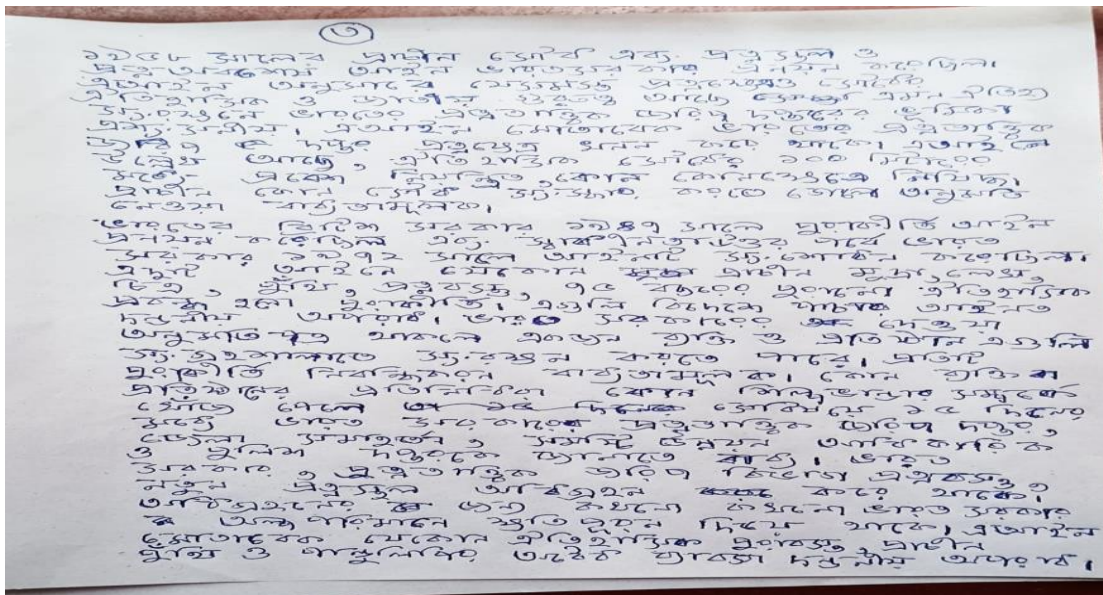 ৩
১৯৫৮ সালের প্রাচীন সৌধ এবং প্রত্নস্থল ও
প্রত্ন অবশেষ আইন ভারত সরকার প্রনয়ন করেছিল।
এআইন অনুসারে যেসমস্ত প্রত্নক্ষেত্র সৌধের
ঐতিহাসিক ও জাতীয় গুরুত্ব আছে এমন ঐতিহ্য
সংরক্ষনে ভারতের প্রত্নতাত্ত্বিক জরিপ দপ্তরের ভূমিকা
এআইন মোতাবেক ভারতের প্রত্নতাত্ত্বিক
জরিপ দপ্তর প্রত্নক্ষেত্র খনন করে থাকে। এআইনে
উল্লেখ আছে, ঐতিহাসিক সৌধের ১০০ মিটারের
মধ্যে প্রবেশ নিয়ন্ত্রিত, কোন কোনক্ষেত্রে নিষিদ্ধ,
প্রাচীন কোন সৌধ সংস্কার করতে গেলে অনুমতি
নেওয়া বাধ্যতামূলক।
ভারতের ব্রিটিশ সরকার ১৯৪৭ সালে পুরাকীর্তি আইন
প্রনয়ন করেছিল এবং স্বাধীনতাউত্তর পর্বে ভারত
সরকার ১৯৭২ সালে আইনটি সংশোধন করেছিল।
এদুটি আইনে যেকোন প্রাচীন মুদ্রা, লেখ,
চিত্র, পুঁথি, প্রত্নবস্তু, ৭৫ বছরের পুরানো ঐতিহাসিক
প্রবন্ধ হলো পুরাকীর্তি। এগুলি বিদেশে পাচার আইনত
দন্ডনীয় অপরাধ। ভারত সরকারের দেওয়া
অনুমতিপত্র থাকলে একজন ব্যক্তি ও প্রতিষ্ঠান এগুলি
সংগ্রহশালাতে সংরক্ষন করতে পারে। প্রতিটি
পুরাকীর্তি নিবন্ধিকরন বাধ্যতামূলক। কোন ব্যক্তি বা
প্রতিষ্ঠানের প্রতিনিধিরা কোন শিল্পভান্ডার সম্পর্কে
খোঁজ পেলে ১৫ দিনের
মধ্যে ভারত সরকারের প্রত্নতাত্ত্বিক জরিপ দপ্তর,
জেলা সমাহর্তা, সমষ্টি উন্নয়ন আধিকারিক
ও পুলিশ দপ্তরকে জানাতে বাধ্য। ভারত
সরকার, প্রত্নতাত্ত্বিক জরিপ বিভাগ প্রত্নবস্তু,
নতুন প্রত্নস্থল অধিগ্রহন করে থাকে।
অধিগ্রহনের জন্য কখনো কখনো ভারত সরকার
অল্প পরিমানে ক্ষতিপূরন দিয়ে থাকে। এআইন
মোতাবেক যেকোন ঐতিহাসিক পুরাবস্তু, প্রাচীন
পুঁথি ও পান্ডুলিপির অবৈধ ব্যাবসা দন্ডনীয় অপরাধ।